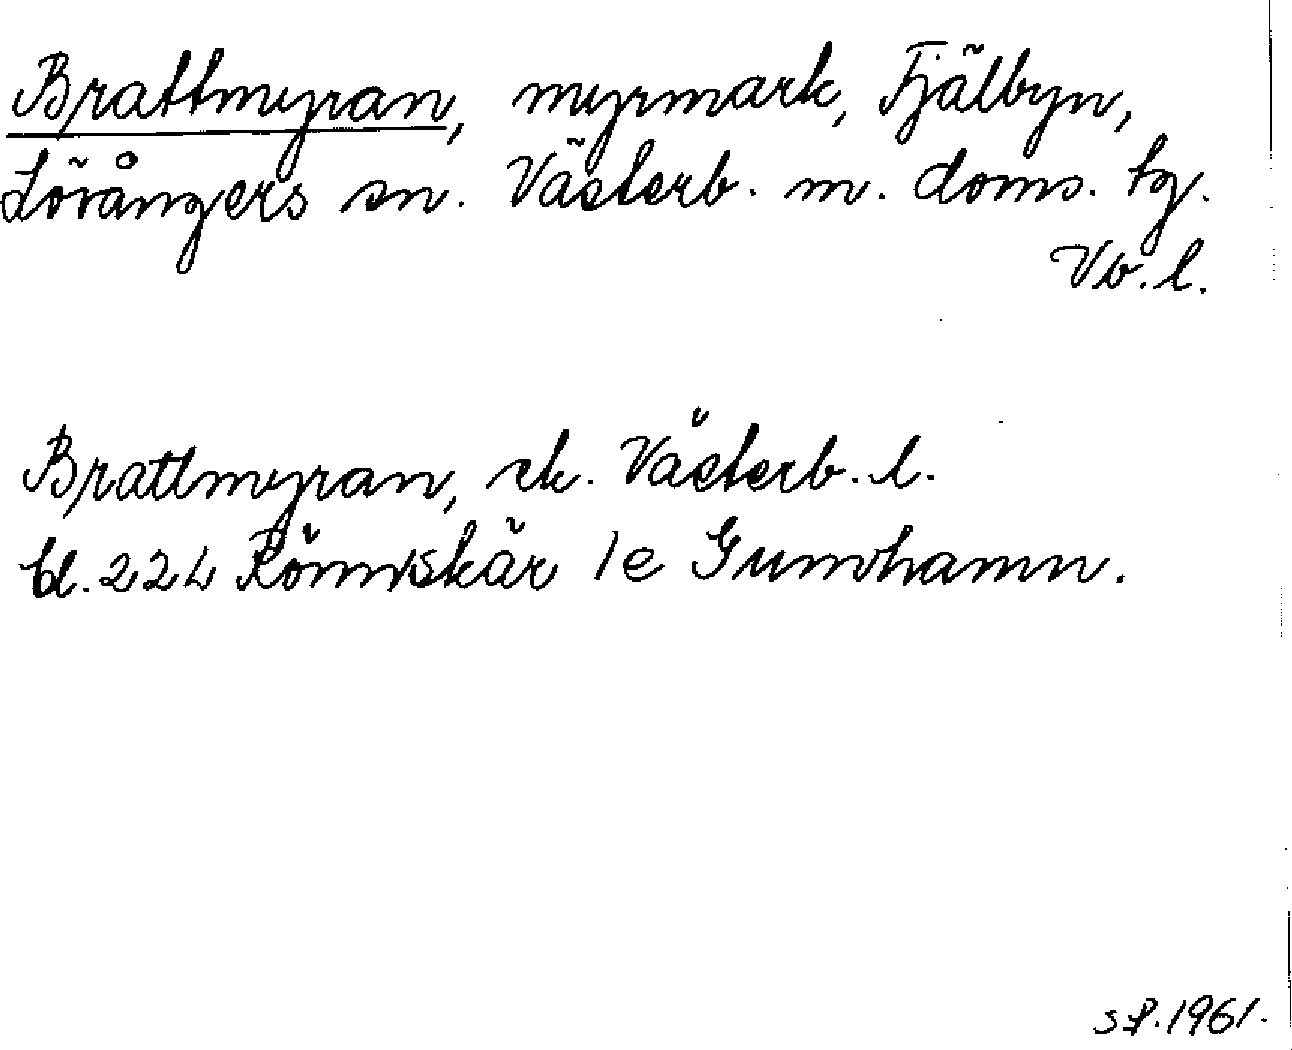 Brattmyran, myrmark, Fjälbyn,
Lövångers sn. Västerb. m. doms. tg.
Vb. l.
Brattmyran, ek. Västerb. l.
bl. 22L Rönnskär 1e Gumhamn.
S.P. 1961.